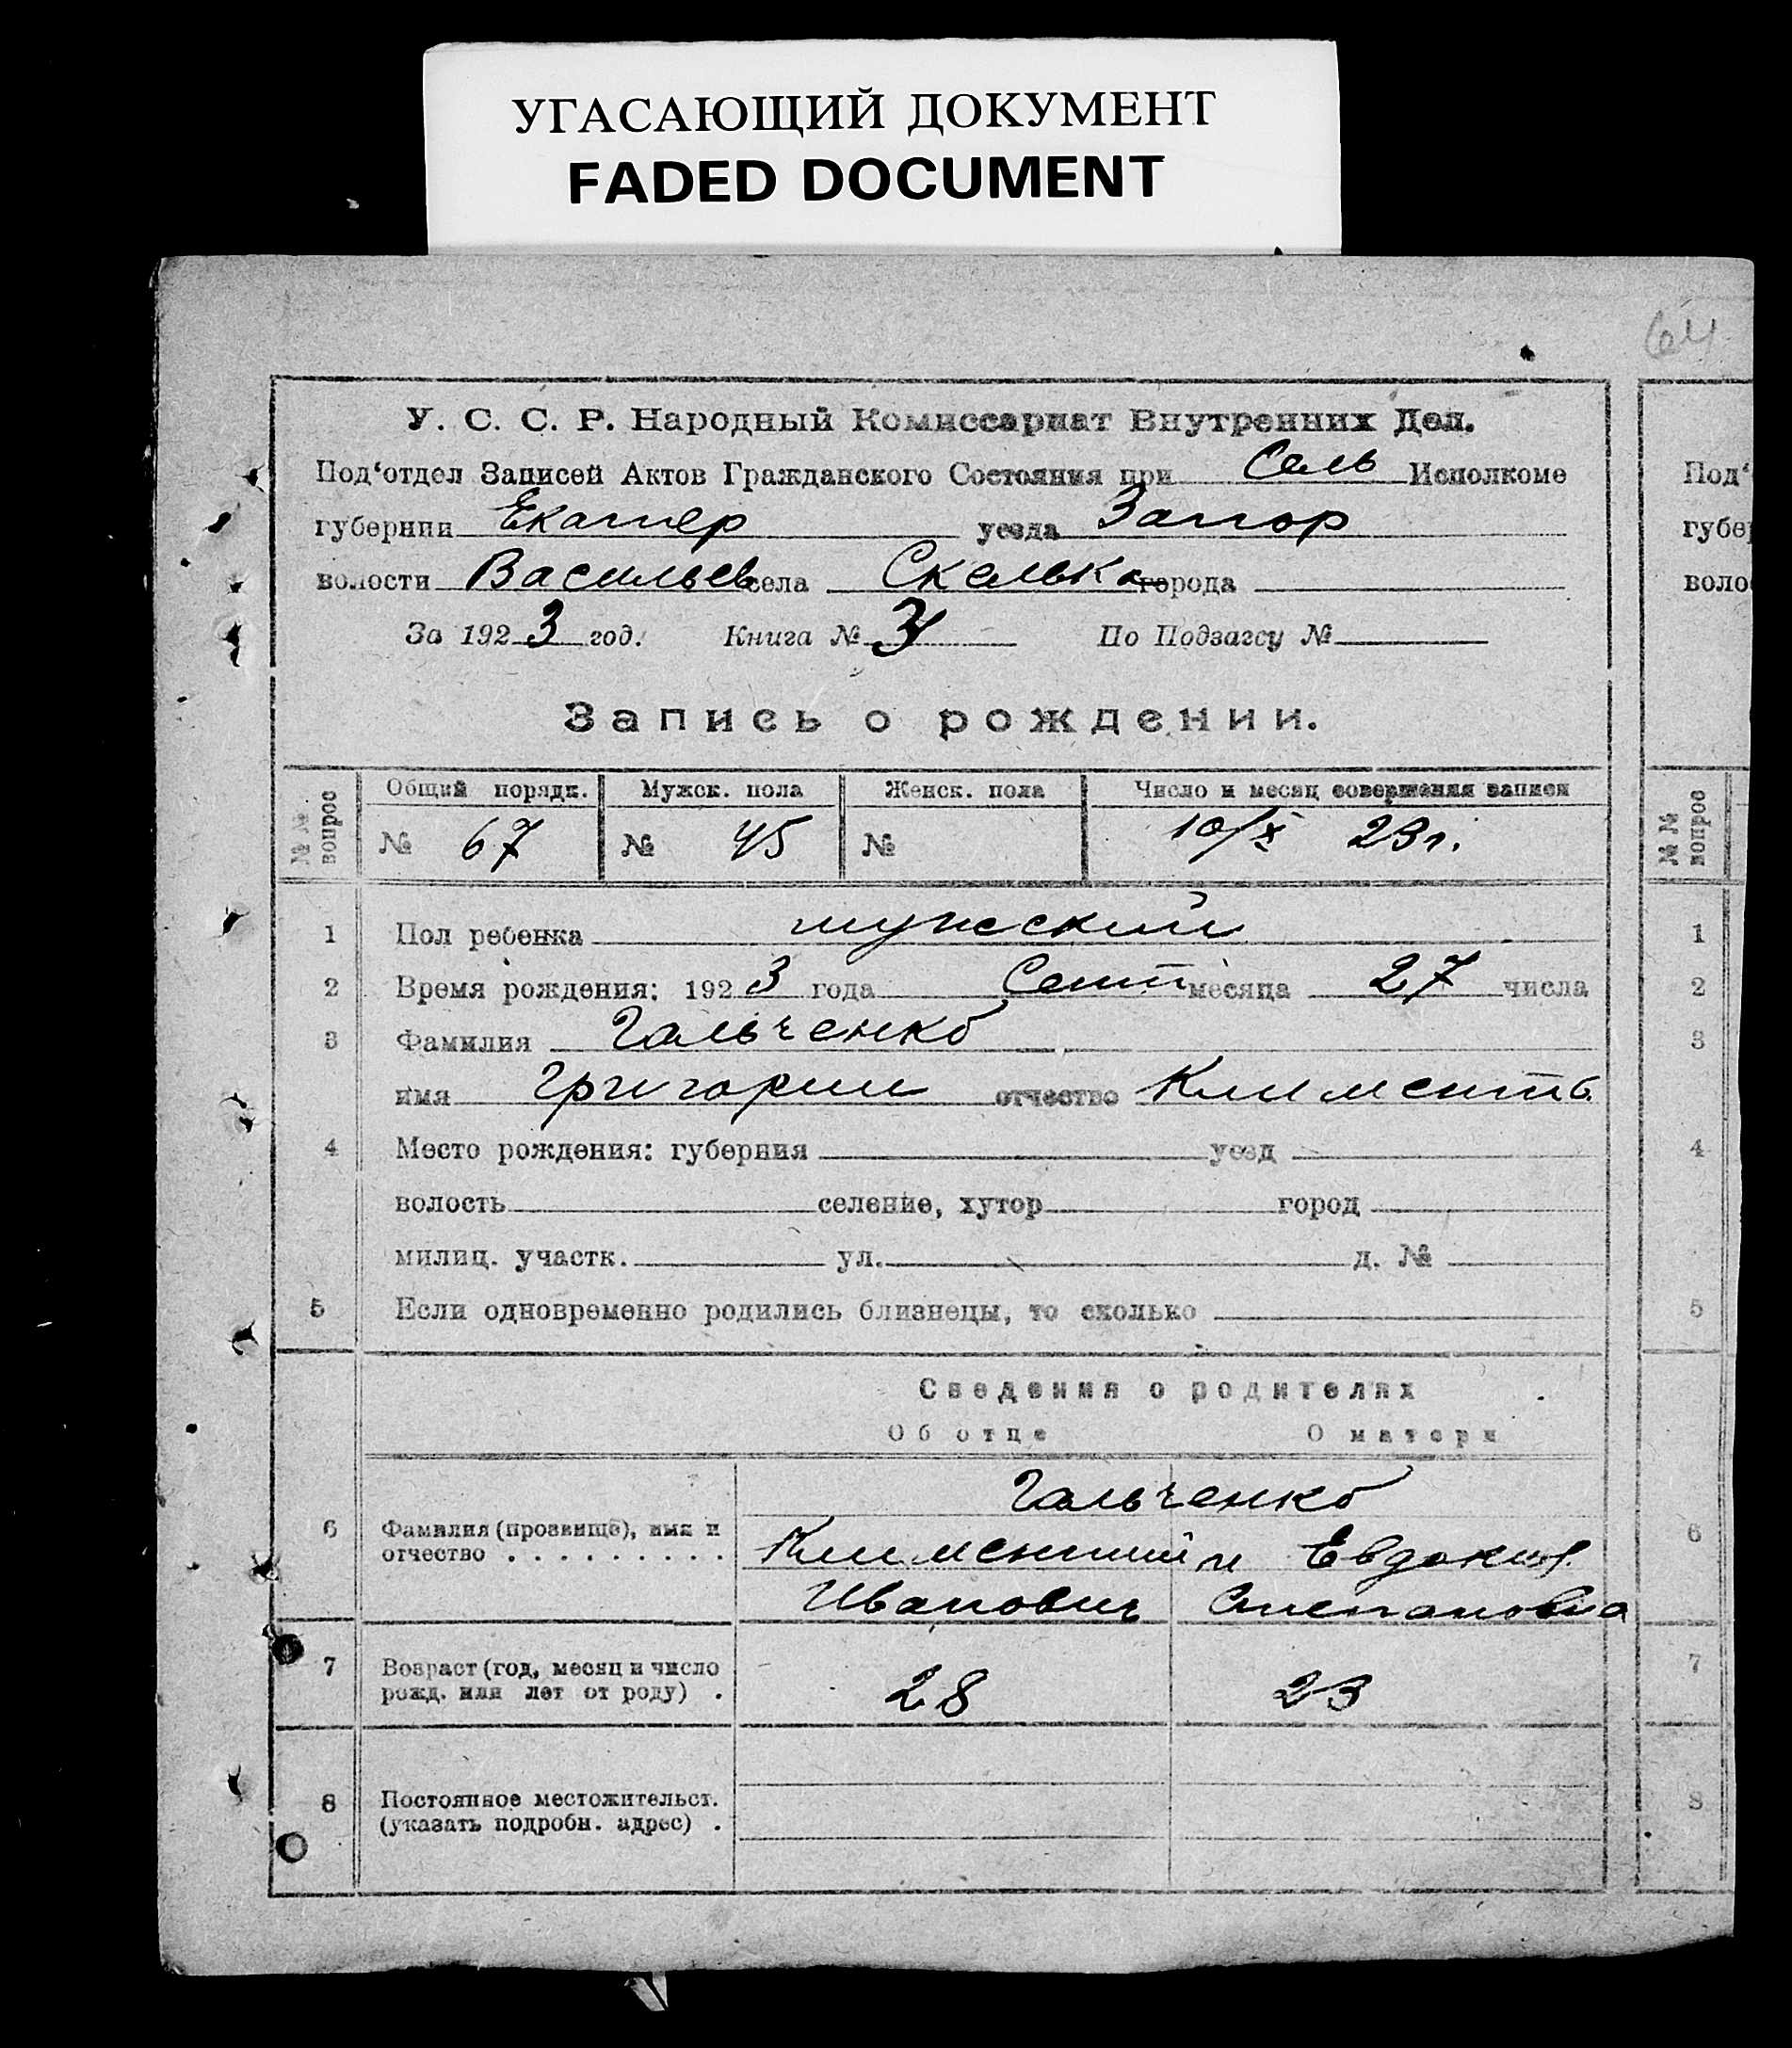 УГАСАЮЩИЙ ДОКУМЕНТ
FADED DOCUMENT
64
У. С. С. Р. Народный Комиссариат Внутренних Дел.
Под‘отдел Записей Актов Гражданского Состояния при Сель Исполкоме
губернии Екатер уезда Запор
волости Васильев села Скельки города
За 1923 год. Книга № По Подзагсу №
Запись о рождении.
№ № вопрос Общий порядк. Мужск. пола Женск. пола Число и месяц совершения записи
№ 67 № 45 № 10/X 23г.
1 Пол ребенка мужский
2 Время рождения: 1923 года Сент месяца 27 числа
3 Фамилия Гальченко
имя Григорий отчество Климентъ.
4 Место рождения: губерния уезд
волость селение, хутор город
милиц. участк. ул. д. №
5 Если одновременно родились близнецы, то сколько
Сведения о родителях
Об отце О матери
Гальченко
6 Фамилия (прозвище), имя и
отчество . . . . . . . . .
Климентий и Евдокия
Иванович Степановна
7 Возраст (год, месяц и число
рожд. или лет от роду) .
28 23
8 Постоянное местожительст.
(указать подробн. адрес) .
Под‘
губер
воло
№ № вопрос
1
2
3
4
5
6
7
8